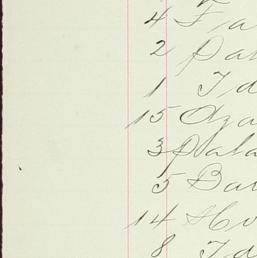 4 Fa
2 Pa
1 Id
15 Oza
3 Pala
5 Bar
14 Ho
8 Id